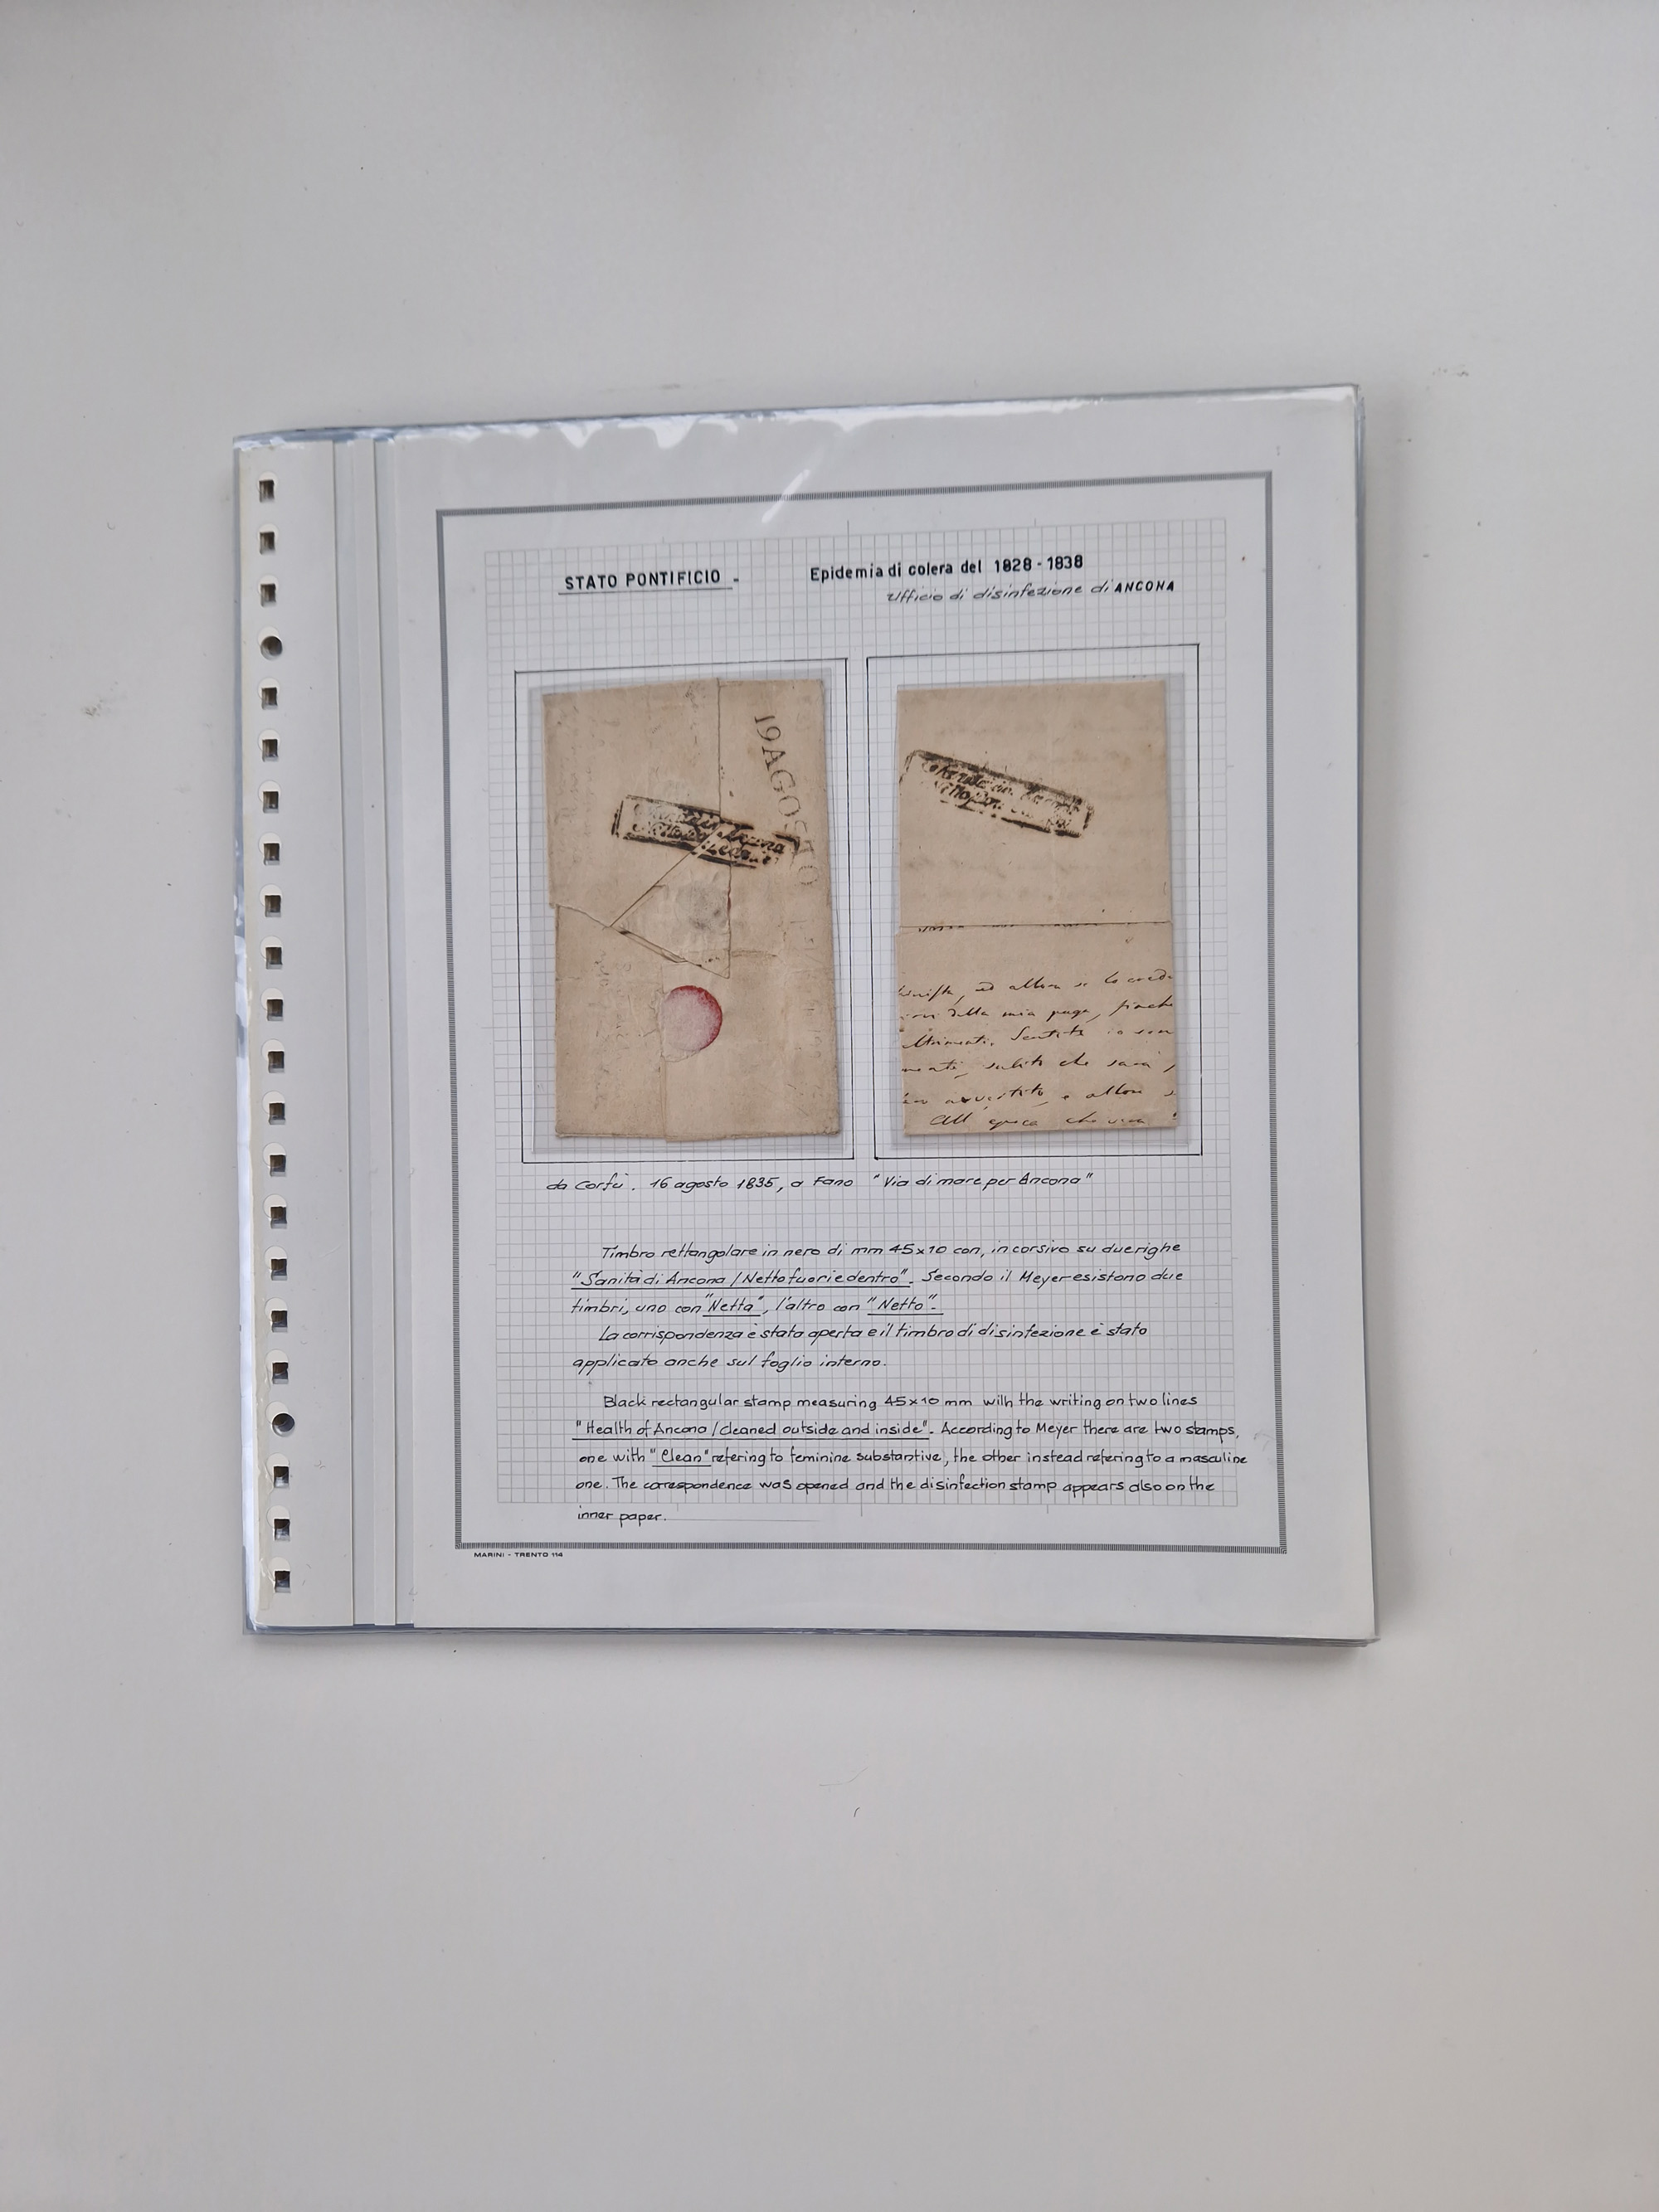 STATO PONTIFICIO -
Epidemia di colera del 1828 - 1838
Ufficio di disinfezione di ANCONA
19 AGOSTO
Ancona
ed allora se lo
della mia paga,
Sentite io son
subito che sarà
avvertito e allora
All' epoca che
da Corfù. 16 agosto 1835, a Fano "Via di mare per Ancona"
Timbro rettangolare in nero di mm 45x10 con, in corsivo su due righe
"Sanità di Ancona / Netto fuori e dentro". Secondo il Meyer esistono due
timbri, uno con "Netta", l'altro con "Netto".
La corrispondenza è stata aperta e il timbro di disinfezione è stato
applicato anche sul foglio interno.
Black rectangular stamp measuring 45x10 mm with the writing on two lines
"Health of Ancona / cleaned outside and inside". According to Meyer there are two stamps,
one with "Clean" refering to feminine substantive, the other instead refering to a masculine
one. The correspondence was opened and the disinfection stamp appears also on the
inner paper.
MARINI - TRENTO 114